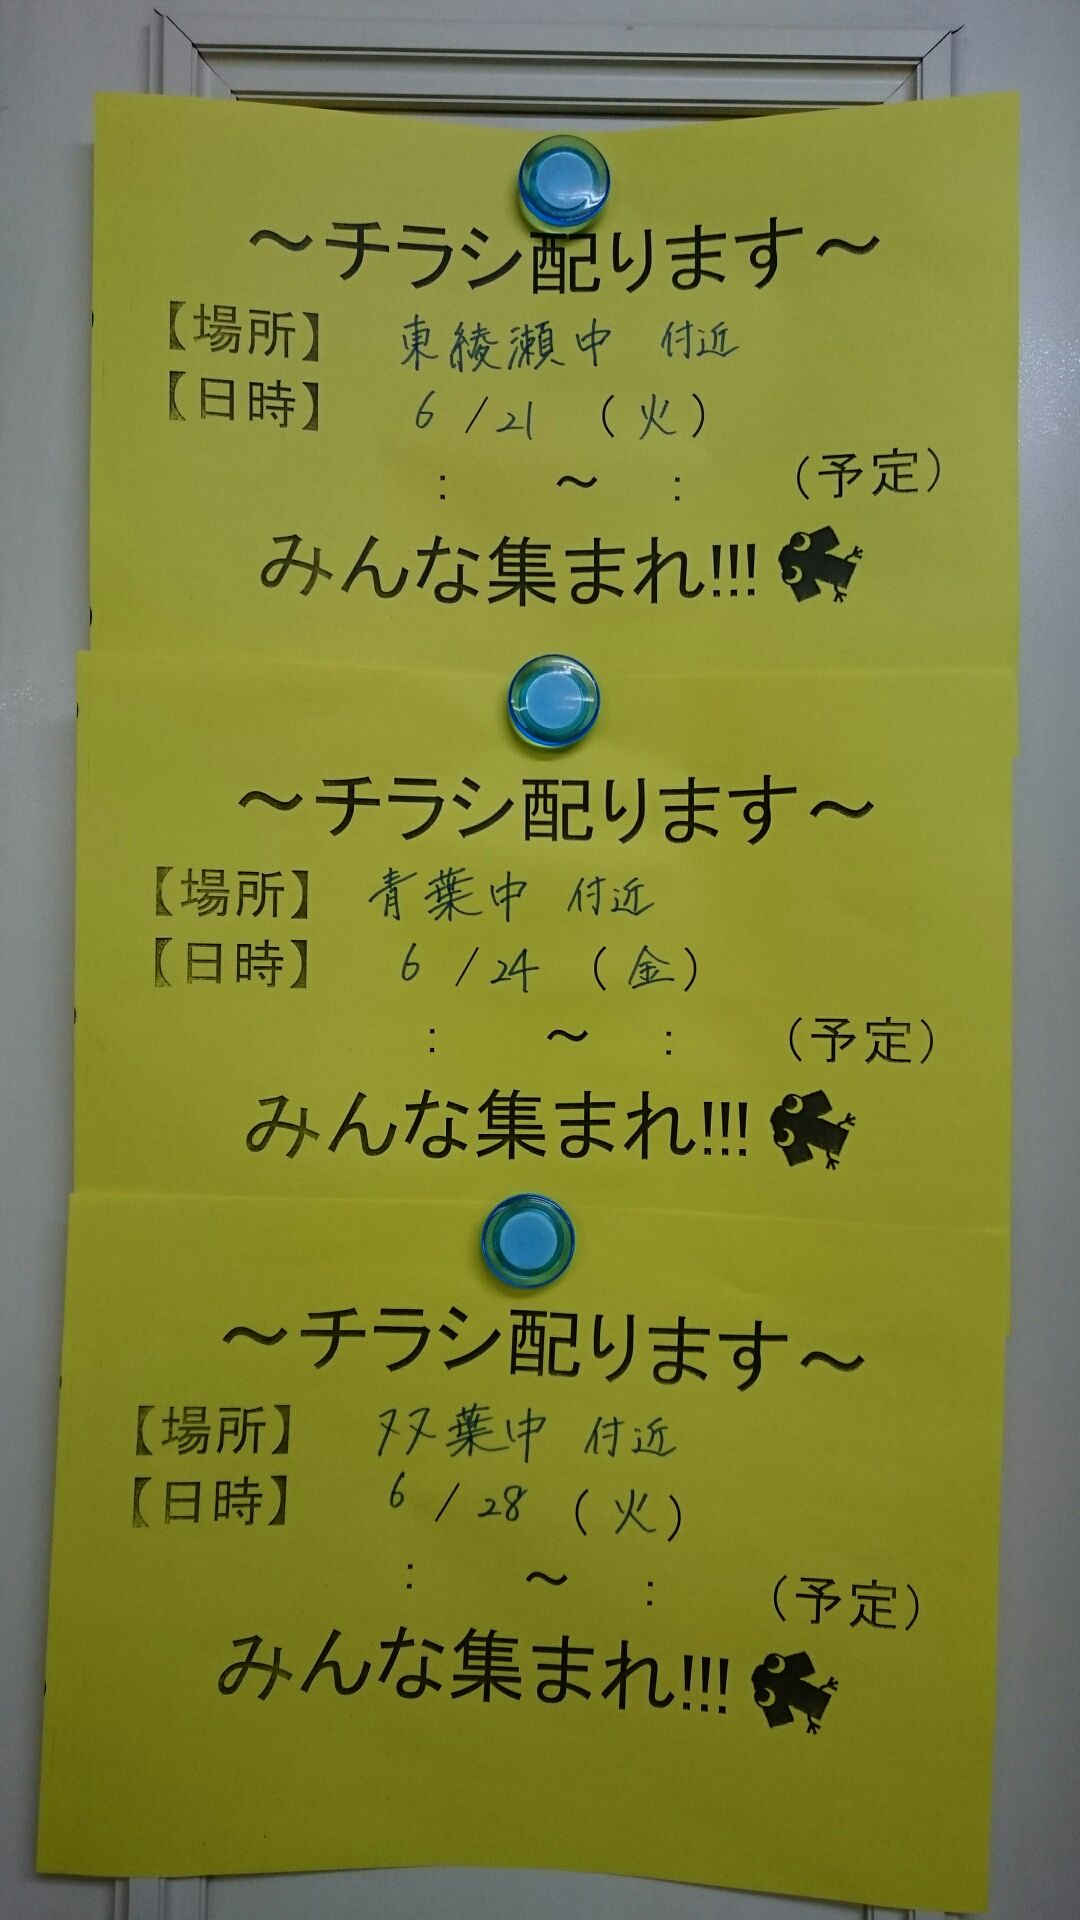 ～チラシ配ります～
【場所】 東綾瀬中 付近
【日時】 6/21 (火)
: ～ : (予定)
みんな集まれ!!!
～チラシ配ります～
【場所】 青葉中 付近
【日時】 6/24 (金)
: ～ : (予定)
みんな集まれ!!!
～チラシ配ります～
【場所】 双葉中 付近
【日時】 6/28 (火)
: ～ : (予定)
みんな集まれ!!!